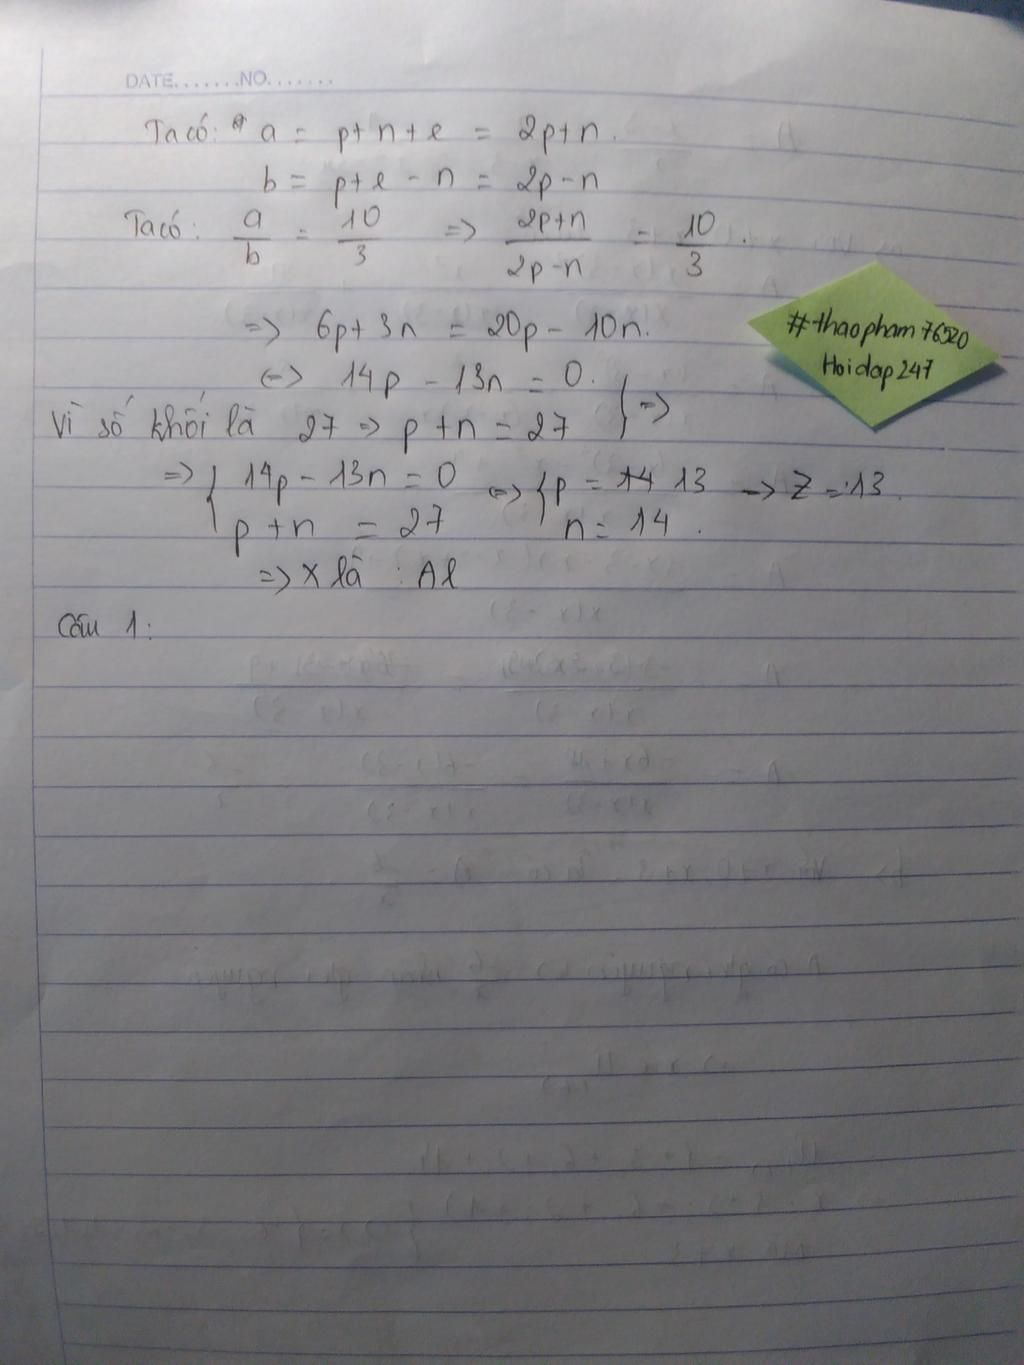 DATE.......NO.......
Ta có: a = p+n+e = 2p+n.
b = p+e-n = 2p-n
Ta có: a/b = 10/3 => 2p+n/2p-n = 10/3.
=> 6p+3n = 20p-10n.
<=> 14p-13n = 0. } =>
Vì số khối là 27 => p+n = 27
=> { 14p-13n = 0 <=> { p = 14 13 -> Z = 13.
p+n = 27 n = 14.
=> X là : Al
Câu 1:
#thaopham76520
Hoidap247